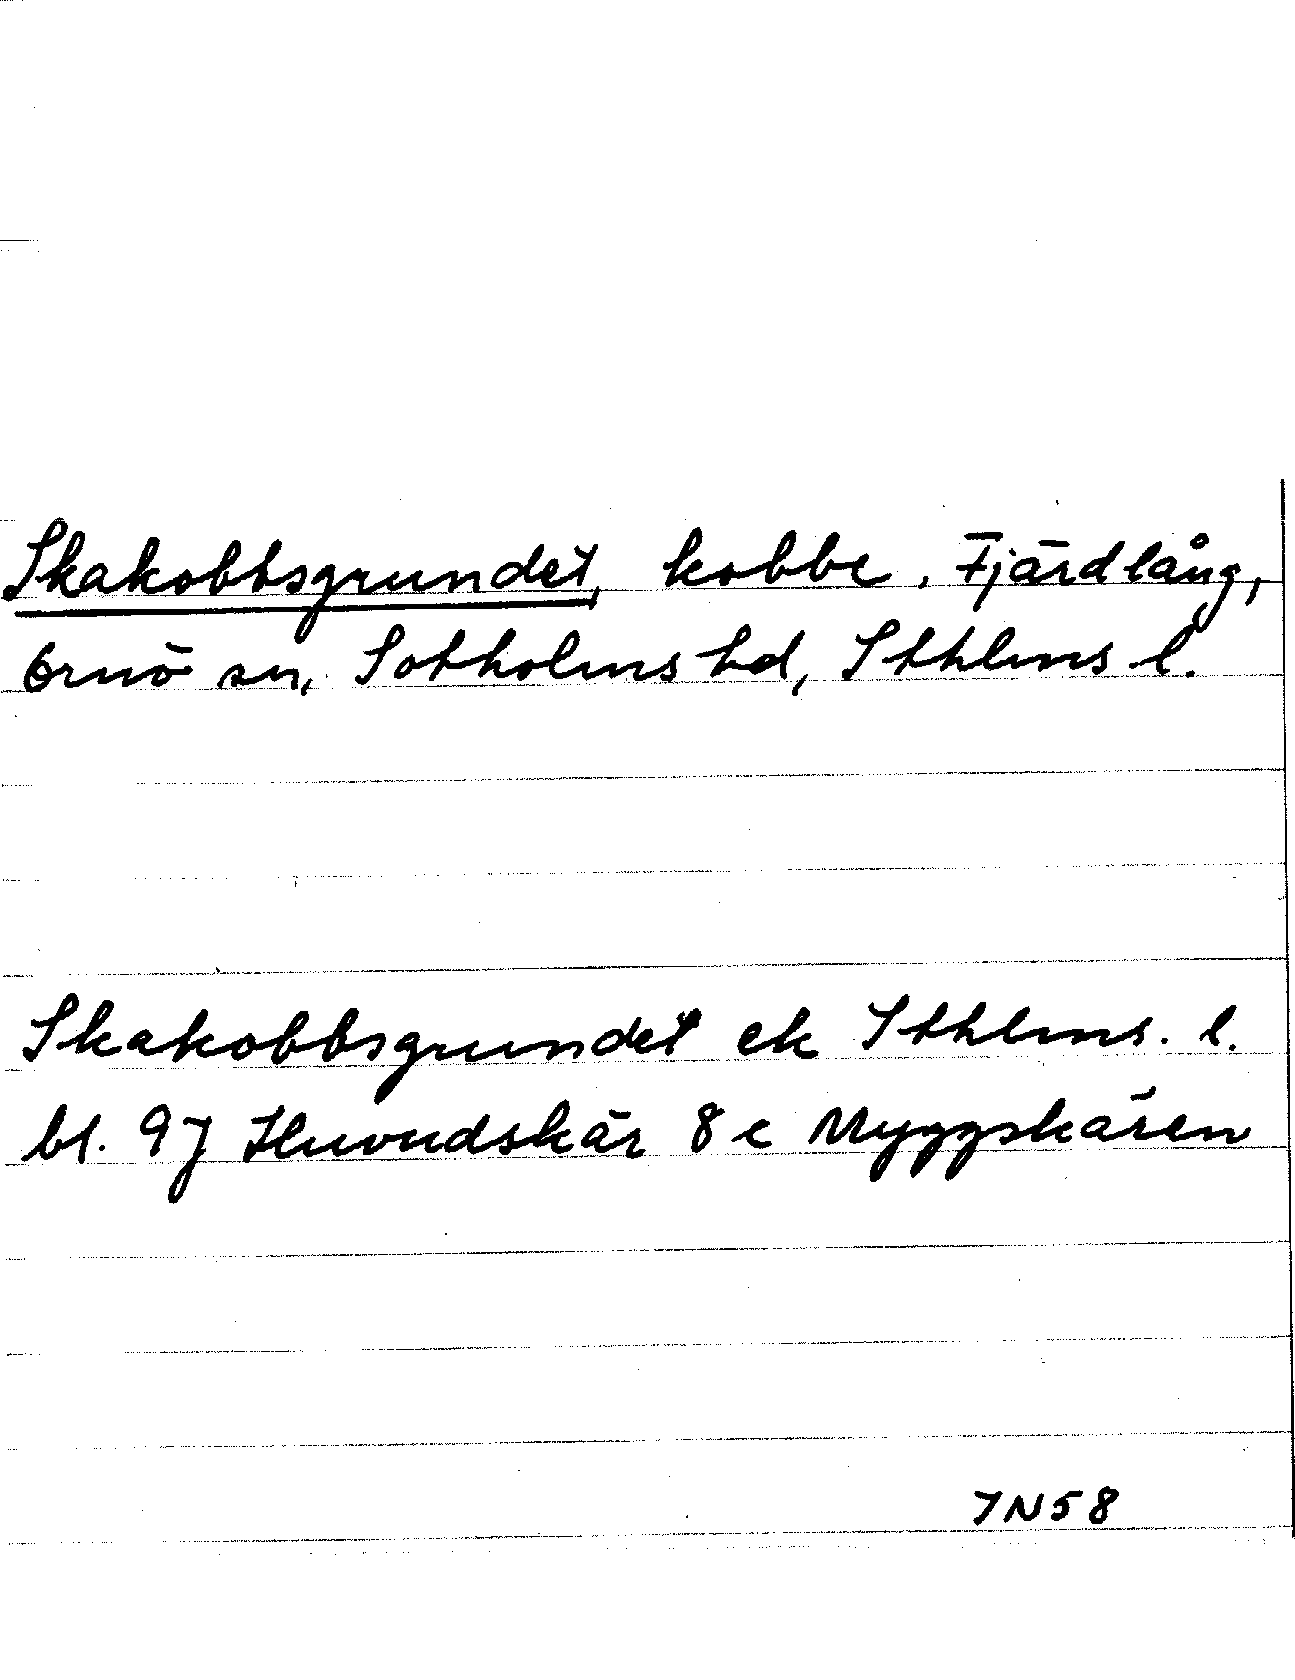 Skakobbsgrundet, kobbe, Fjärdlång,
Ornö sn, Sotholms hd, Sthlms l.
Skakobbsgrundet ek Sthlms. l.
bl. 9J Huvudskär 8 c Myggskären
JN58